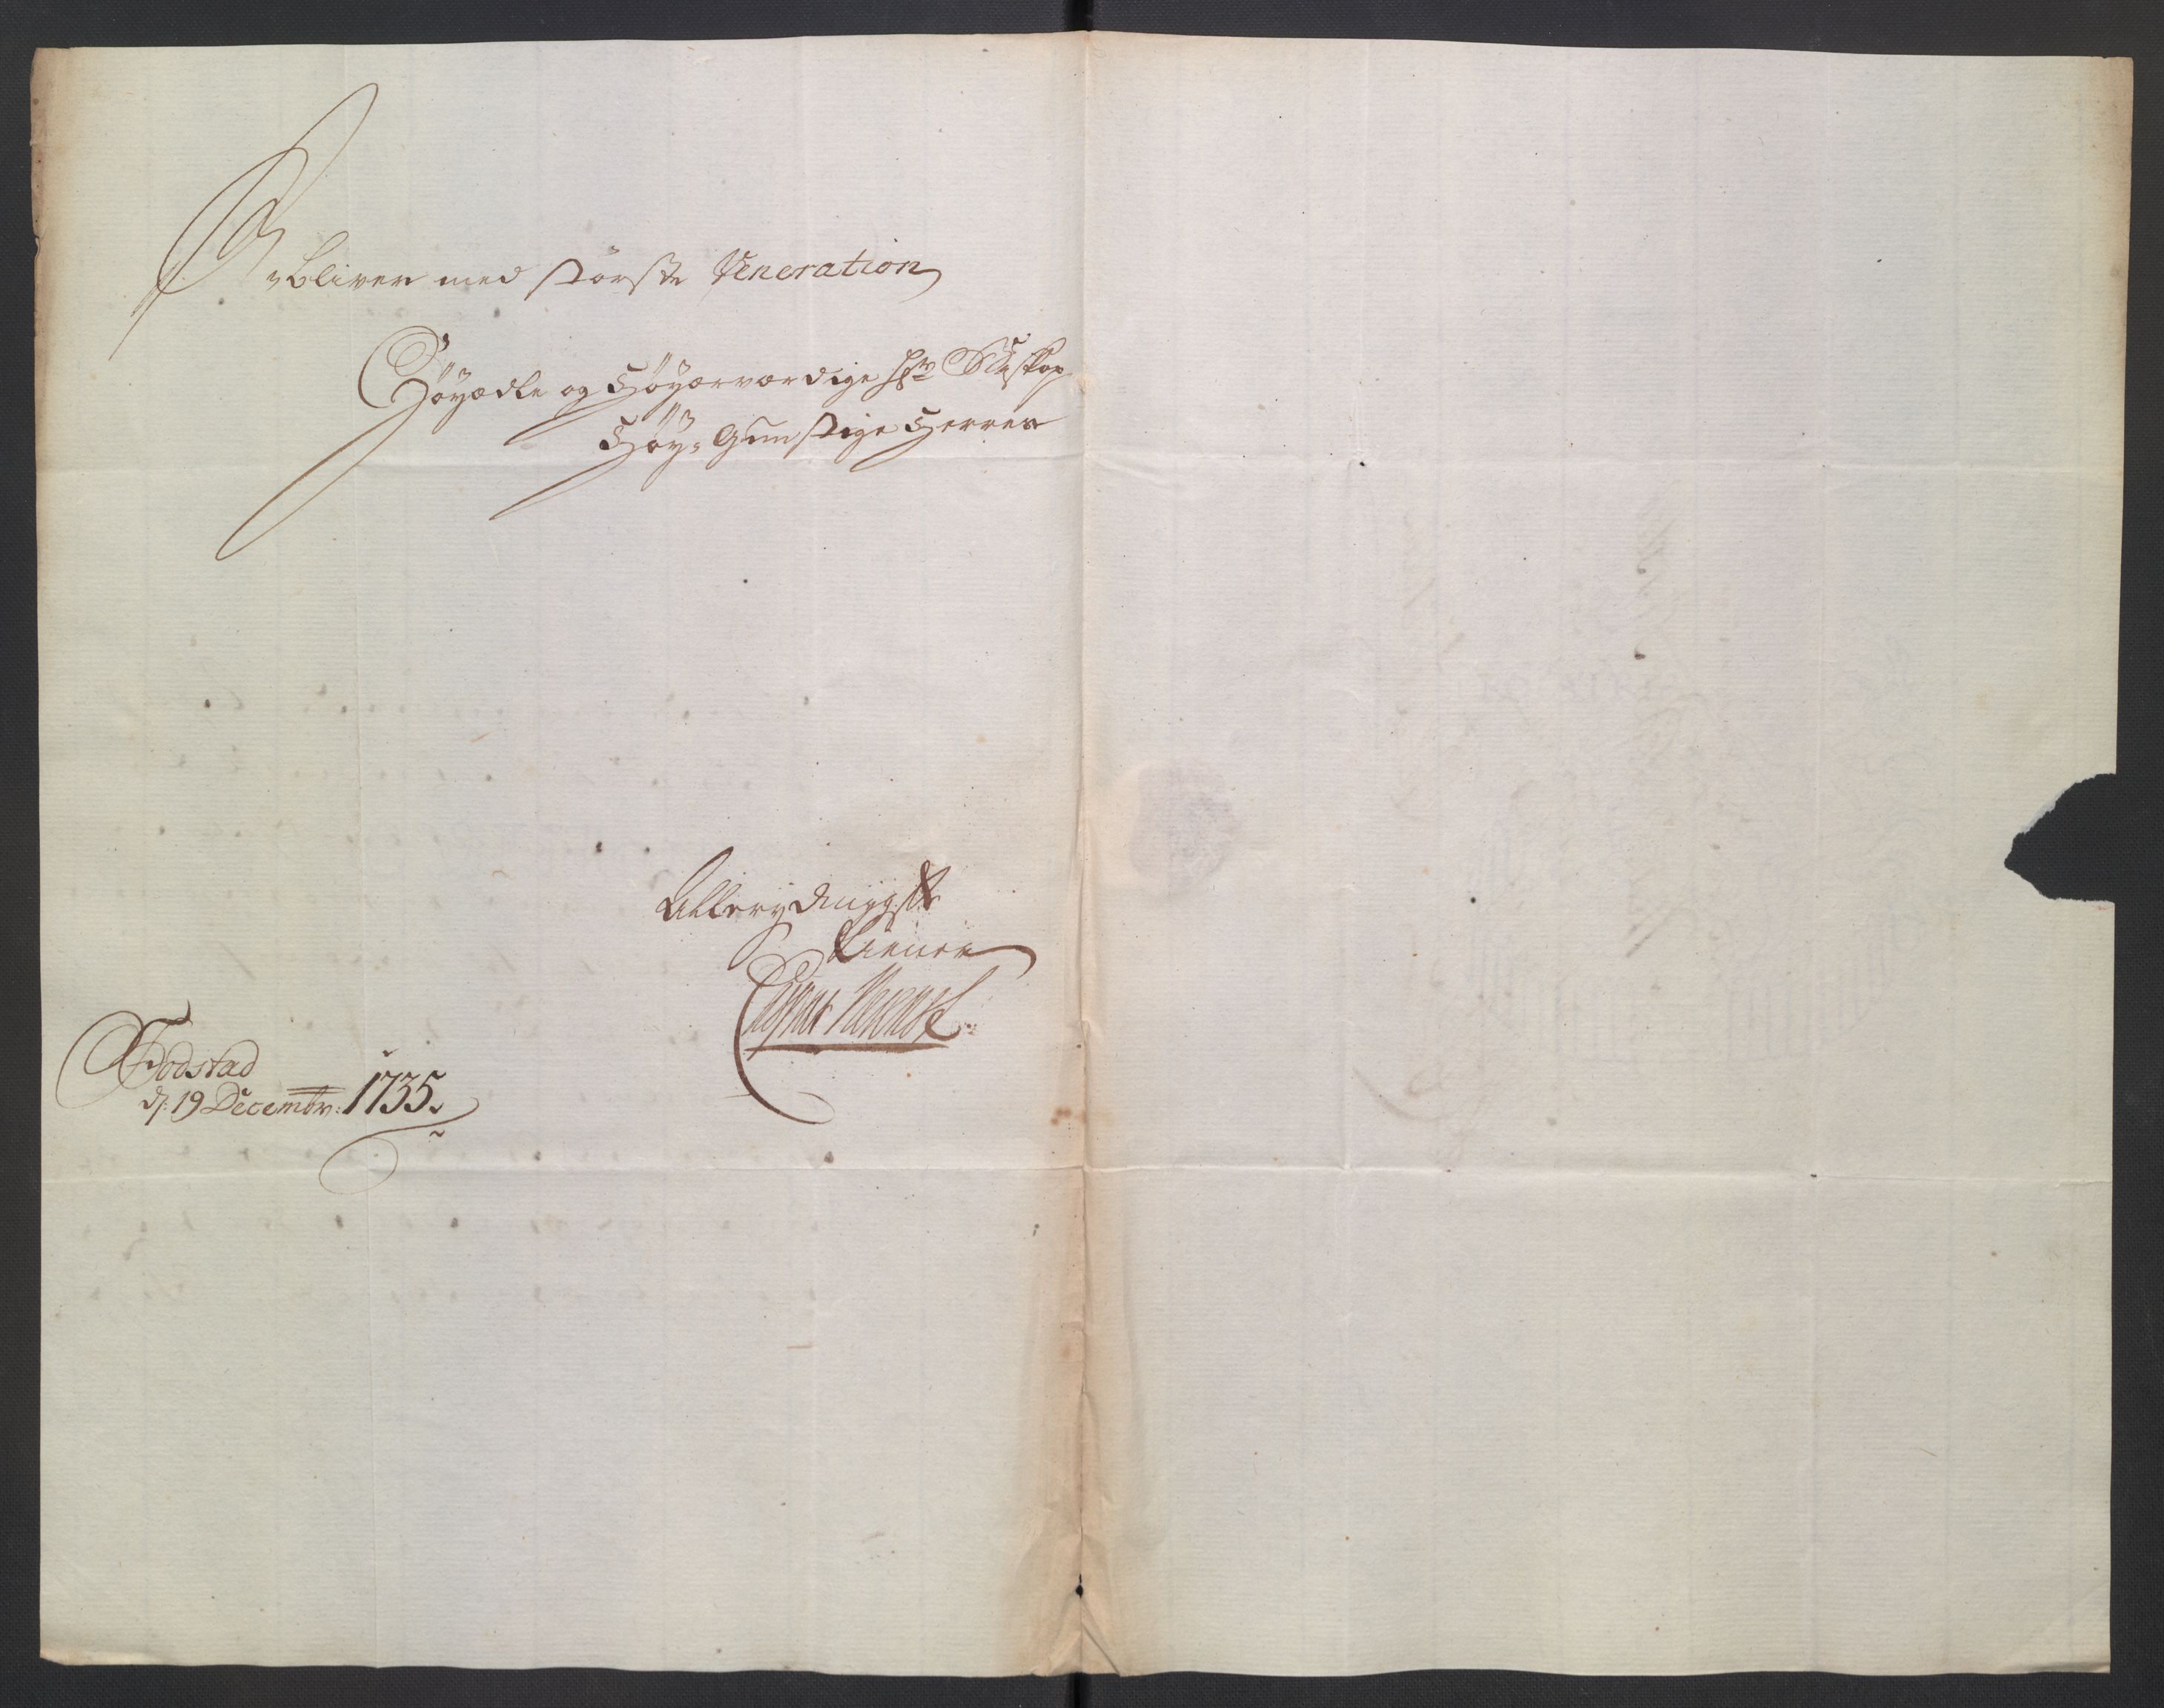 bliver med største Veneration
Höyædle og Höyærværdige Hr Biskop
Höy-Gunstige Herres
Allerydmygste
tiener
Fodstad
d: 19 Decembr: 1735.